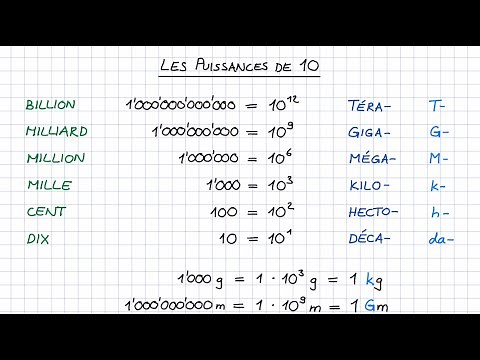 LES PUISSANCES DE 10
BILLION 1'000'000'000'000 = 10¹² TÉRA- T-
MILLIARD 1'000'000'000 = 10⁹ GIGA- G-
MILLION 1'000'000 = 10⁶ MÉGA- M-
MILLE 1'000 = 10³ KILO- k-
CENT 100 = 10² HECTO- h-
DIX 10 = 10¹ DÉCA- da-
1'000 g = 1 · 10³ g = 1 kg
1'000'000'000 m = 1 · 10⁹ m = 1 Gm